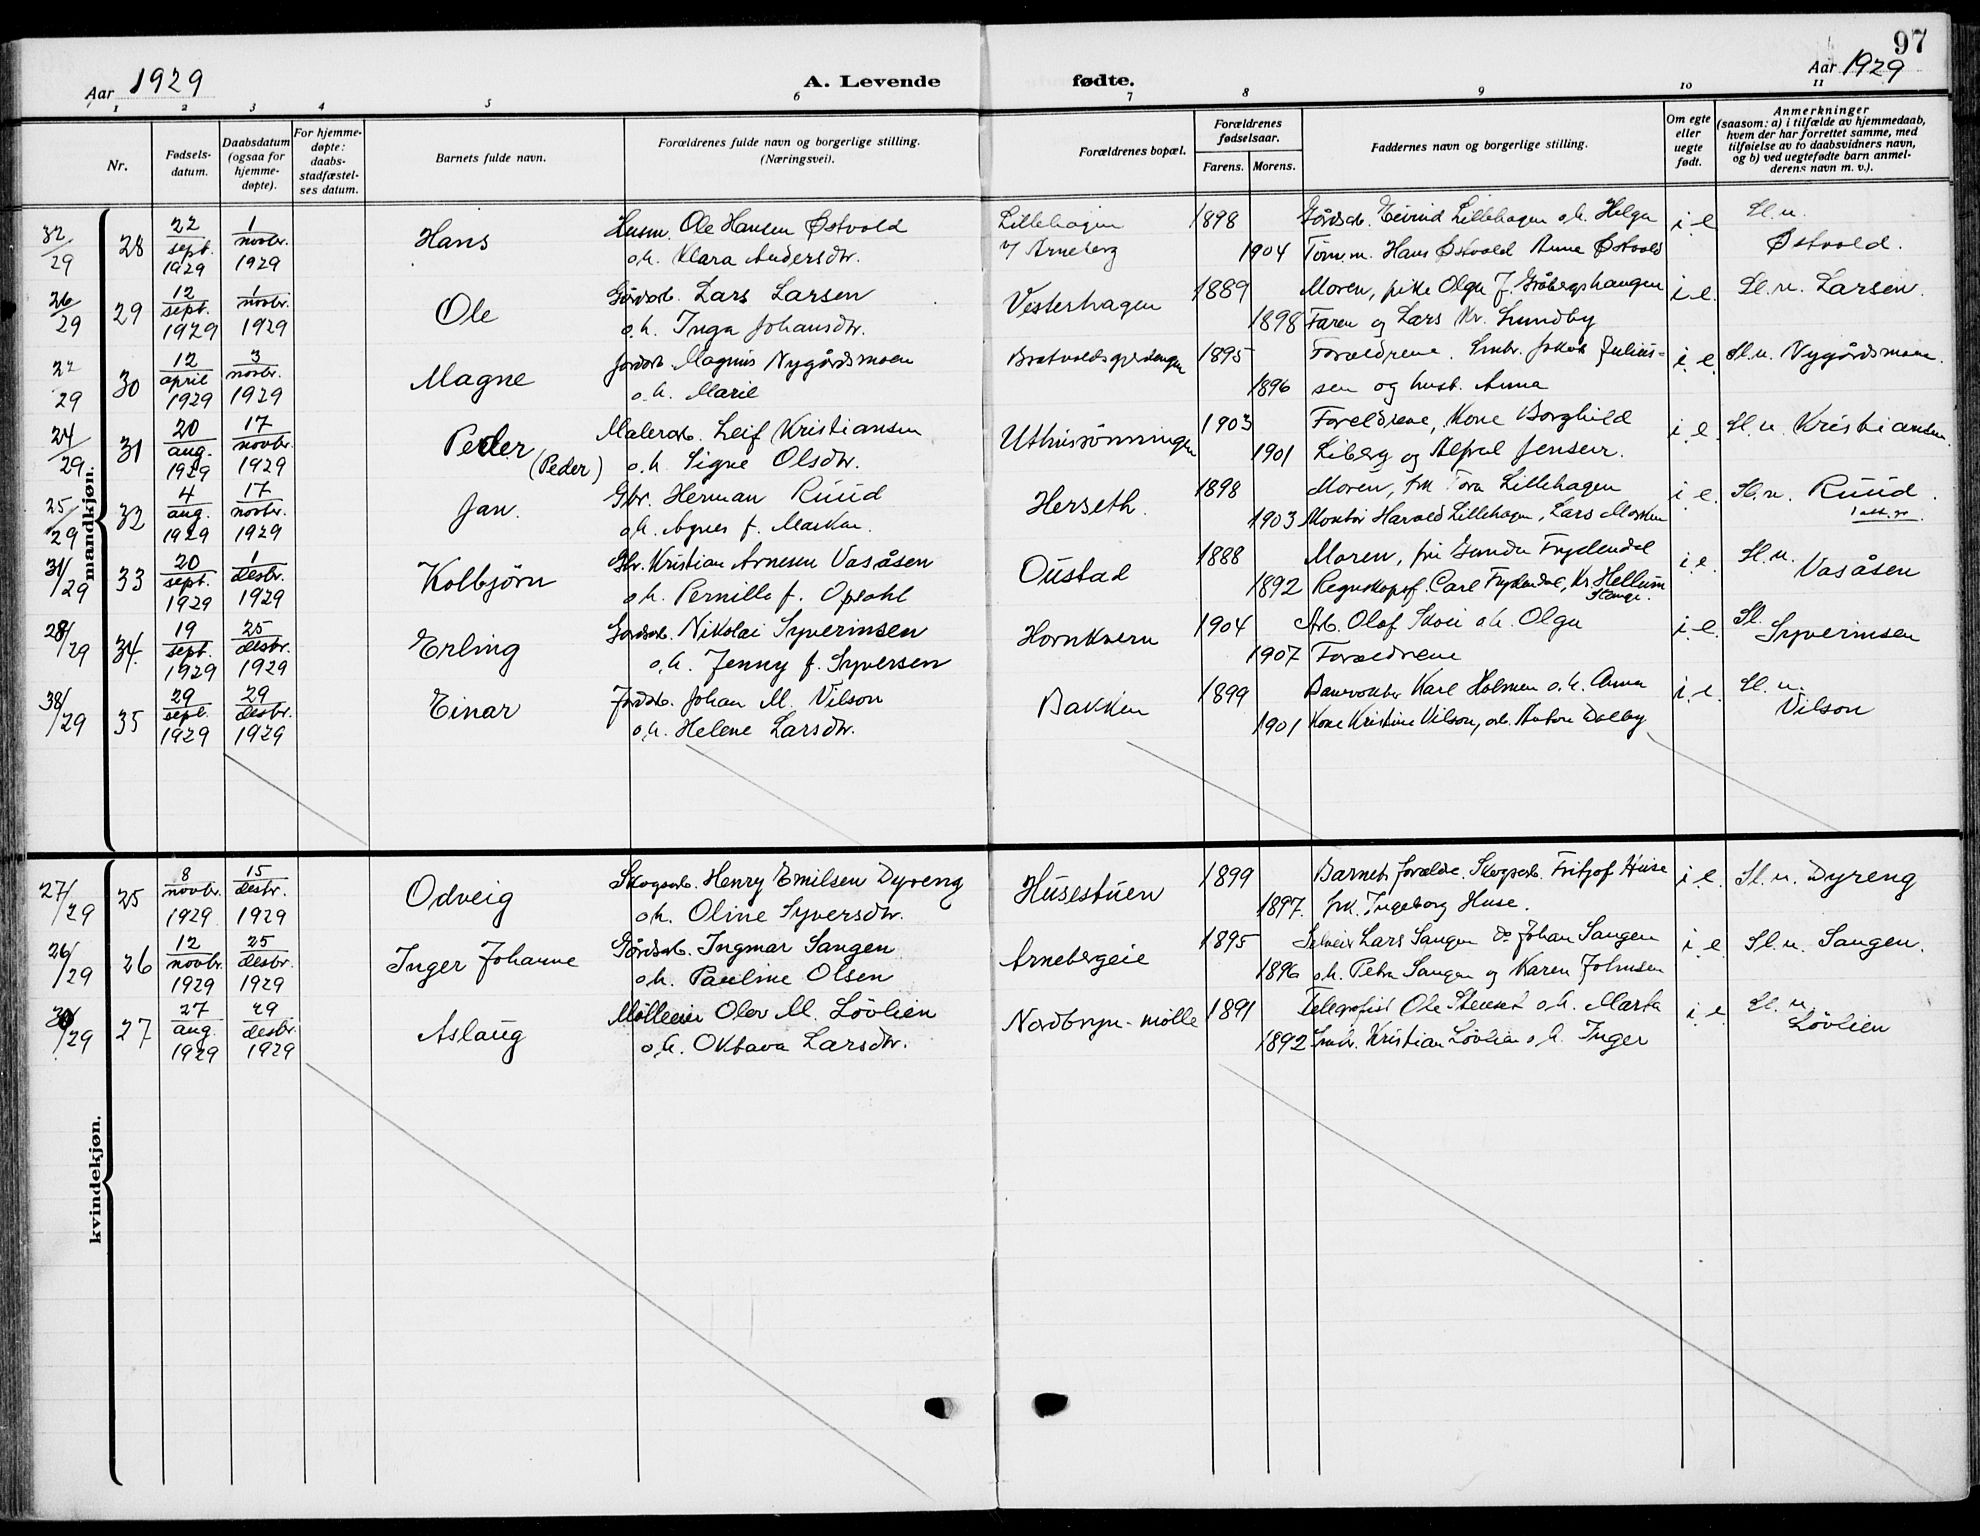 97
Aar 1929
A. Levende fødte.
Aar 1929
1 2 3 4 5 6 7 8 9 10 11
Nr.
Fødsels-
datum.
Daabsdatum
(ogsaa for
hjemme-
døpte).
For hjemme-
døpte:
daabs-
stadfæstel-
ses datum.
Barnets fulde navn.
Forældrenes fulde navn og borgerlige stilling.
(Næringsvei).
Forældrenes bopæl.
Forældrenes
fødselsaar.
Farens. Morens.
Faddernes navn og borgerlige stilling.
Om egte
eller
uegte
født.
Anmerkninger
(saasom: a) i tilfælde av hjemmedaab,
hvem der har forrettet samme, med
tilføielse av to daabsvidners navn,
og b) ved uegtefødte barn anmel-
derens navn m. v.).
mandkjøn.
32/29 28 22 sept. 1929 1 novbr. 1929 Hans
Husm. Ole Hansen Østvold
o.h. Klara Andersdtr.
Lillehagen
v/ Arneberg
1898 1904
Gårdsb. Eivind Lillehagen o.h. Helga
Tømm. Hans Østvold Anna Østvold
i.e. Sl.u.
Østvold.
26/29 29 12 sept. 1929 1 novbr. 1929 Ole
Gårdsb. Lars Larsen
o.h. Inga Johansdtr.
Vesterhagen
1889 1898
Moren, pike Olga J. Gråbergshaugen
Faren og Lars Kr. Lundby
i.e. Sl.u. Larsen.
22/29 30 12 april 1929 3 novbr. 1929 Magne
Jordsb. Magnus Nygårdsmoen
o.h. Marie
1895 1896
Forældrene. Smbr. Jakob Julius-
sen og hust. Anna
i.e. Sl.u. Nygårdsmoen.
24/29 31 20 aug. 1929 17 novbr. 1929 Peder (Peder)
Malerarb. Leif Kristiansen
o.h. Signe Olsdtr.
Uthusrønningen
1903 1901
Foreldrene, Kone Borghild
Liberg og Alfred Jensen.
i.e. Sl.u. Kristiansen.
25/29 32 4 aug. 1929 17 novbr. 1929 Jan.
Gbr. Herman Ruud
o.h. Agnes f. Masken.
Herseth.
1898 1903
Moren, frk Tora Lillehagen
Montør Harald Lillehagen, Lars Mosken
i.e. Sl.u. Ruud.
31/29 33 20 sept. 1929 1 desbr. 1929 Kolbjörn
Gbr. Kristian Arnesen Vasåsen
o.h. Pernille f. Opsahl
Oustad
1888 1892
Moren, fru Gunda Frydendal
Regnskapsf. Carl Frydendal, Kr. Hellum
Stange.
i.e. Sl.u.
Vasåsen
28/29 34 19 sept. 1929 25 desbr. 1929 Erling
Gårdsb. Nikolai Syverinsen
o.h. Jenny f. Syversen
Hornkvern
1904 1907
Arb. Olaf Skou o.h. Olga
Forældrene
i.e. Sl.
Syverinsen
38/29 35 29 sept. 1929 29 desbr. 1929 Einar
Jordsb. Johan M. Vilson
o.h. Helene Larsdtr.
Bakken
1899 1901
Banevokter Karl Holmen o.h. Anna
Kone Kristine Vilson, arb. Anton Dalby
i.e. Sl.u.
Vilson
kvindekjøn.
27/29 25 8 novbr. 1929 15 desbr. 1929 Odveig
Skogsarb. Henry Emilsen Dyreng
o.h. Oline Syversdtr.
Husestuen
1899 1897.
Barnets forældre. Skogsarb. Fritjof Huse
frk. Ingeborg Huse.
i.e. Sl.u. Dyreng
26/29 26 12 novbr. 1929 25 desbr. 1929 Inger Johanne
Gårdsarb. Ingmar Sangen
o.h. Pauline Olsen
Arnebergeie
1895 1896
Selveier Lars Sangen Do Johan Sangen
o.h. Petra Sangen og Karen Johnsen
i.e. Sl.u. Sangen.
/29 27 27 aug. 1929 29 desbr. 1929 Aslaug
Mølleeier Olav M. Lövlien
o.h. Oktava Larsdtr.
Nordbryn-mølle
1891 1892
Telegrafist Ole Stenset o.h. Marta
Smbr. Kristian Lövlien o.h. Inger
i.e. Sl.u.
Lövlien